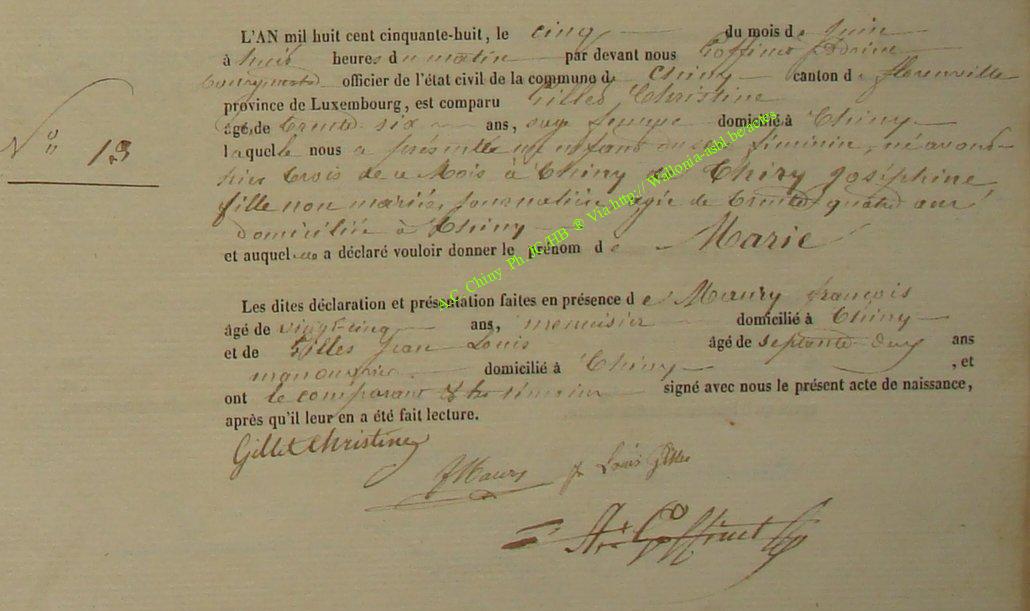 L'AN mil huit cent cinquante-huit, le cinq du mois de Juin
à huit heures du matin par devant nous Goffinet
Bourgmestre officier de l'état civil de la commune de Chiny canton de Florenville
province de Luxembourg, est comparu Gilles Christine
âgé de trente six ans, sage femme domicilié à Chiny
laquelle nous a présenté un enfant du sexe féminin, né avant
hier trois de ce Mois à Chiny de Thiry Joséphine,
fille non mariée, Journalière, agée de trente quatre ans
domiciliée à Chiny
et auquel elle a déclaré vouloir donner le prénom de Marie
No 13
Les dites déclaration et présentation faites en présence de Maury françois
âgé de vingt-cinq ans, menuisier domicilié à Chiny
et de Gilles Jean Louis âgé de septante deux ans
manouvrier domicilié à Chiny, et
ont le comparant & les témoins signé avec nous le présent acte de naissance,
après qu'il leur en a été fait lecture.
Gillet Christine
FMaury J Louis Gilles
Goffinet
A.C. Chiny Ph. JC/HB ® Via http://Wallonia-asbl.be/actes